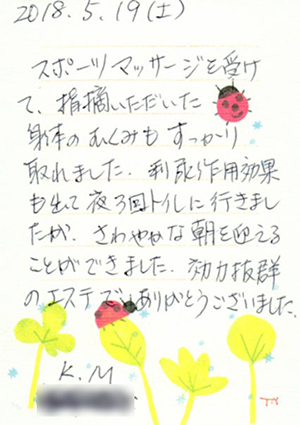 2018.5.19(土)
スポーツマッサージを受け
て、指摘いただいた
身体のむくみもすっかり
取れました。利尿作用効果
も出て夜3回トイレに行きまし
たが、さわやかな朝を迎える
ことができました。効力抜群
のエステでありがとうございました。
K.M